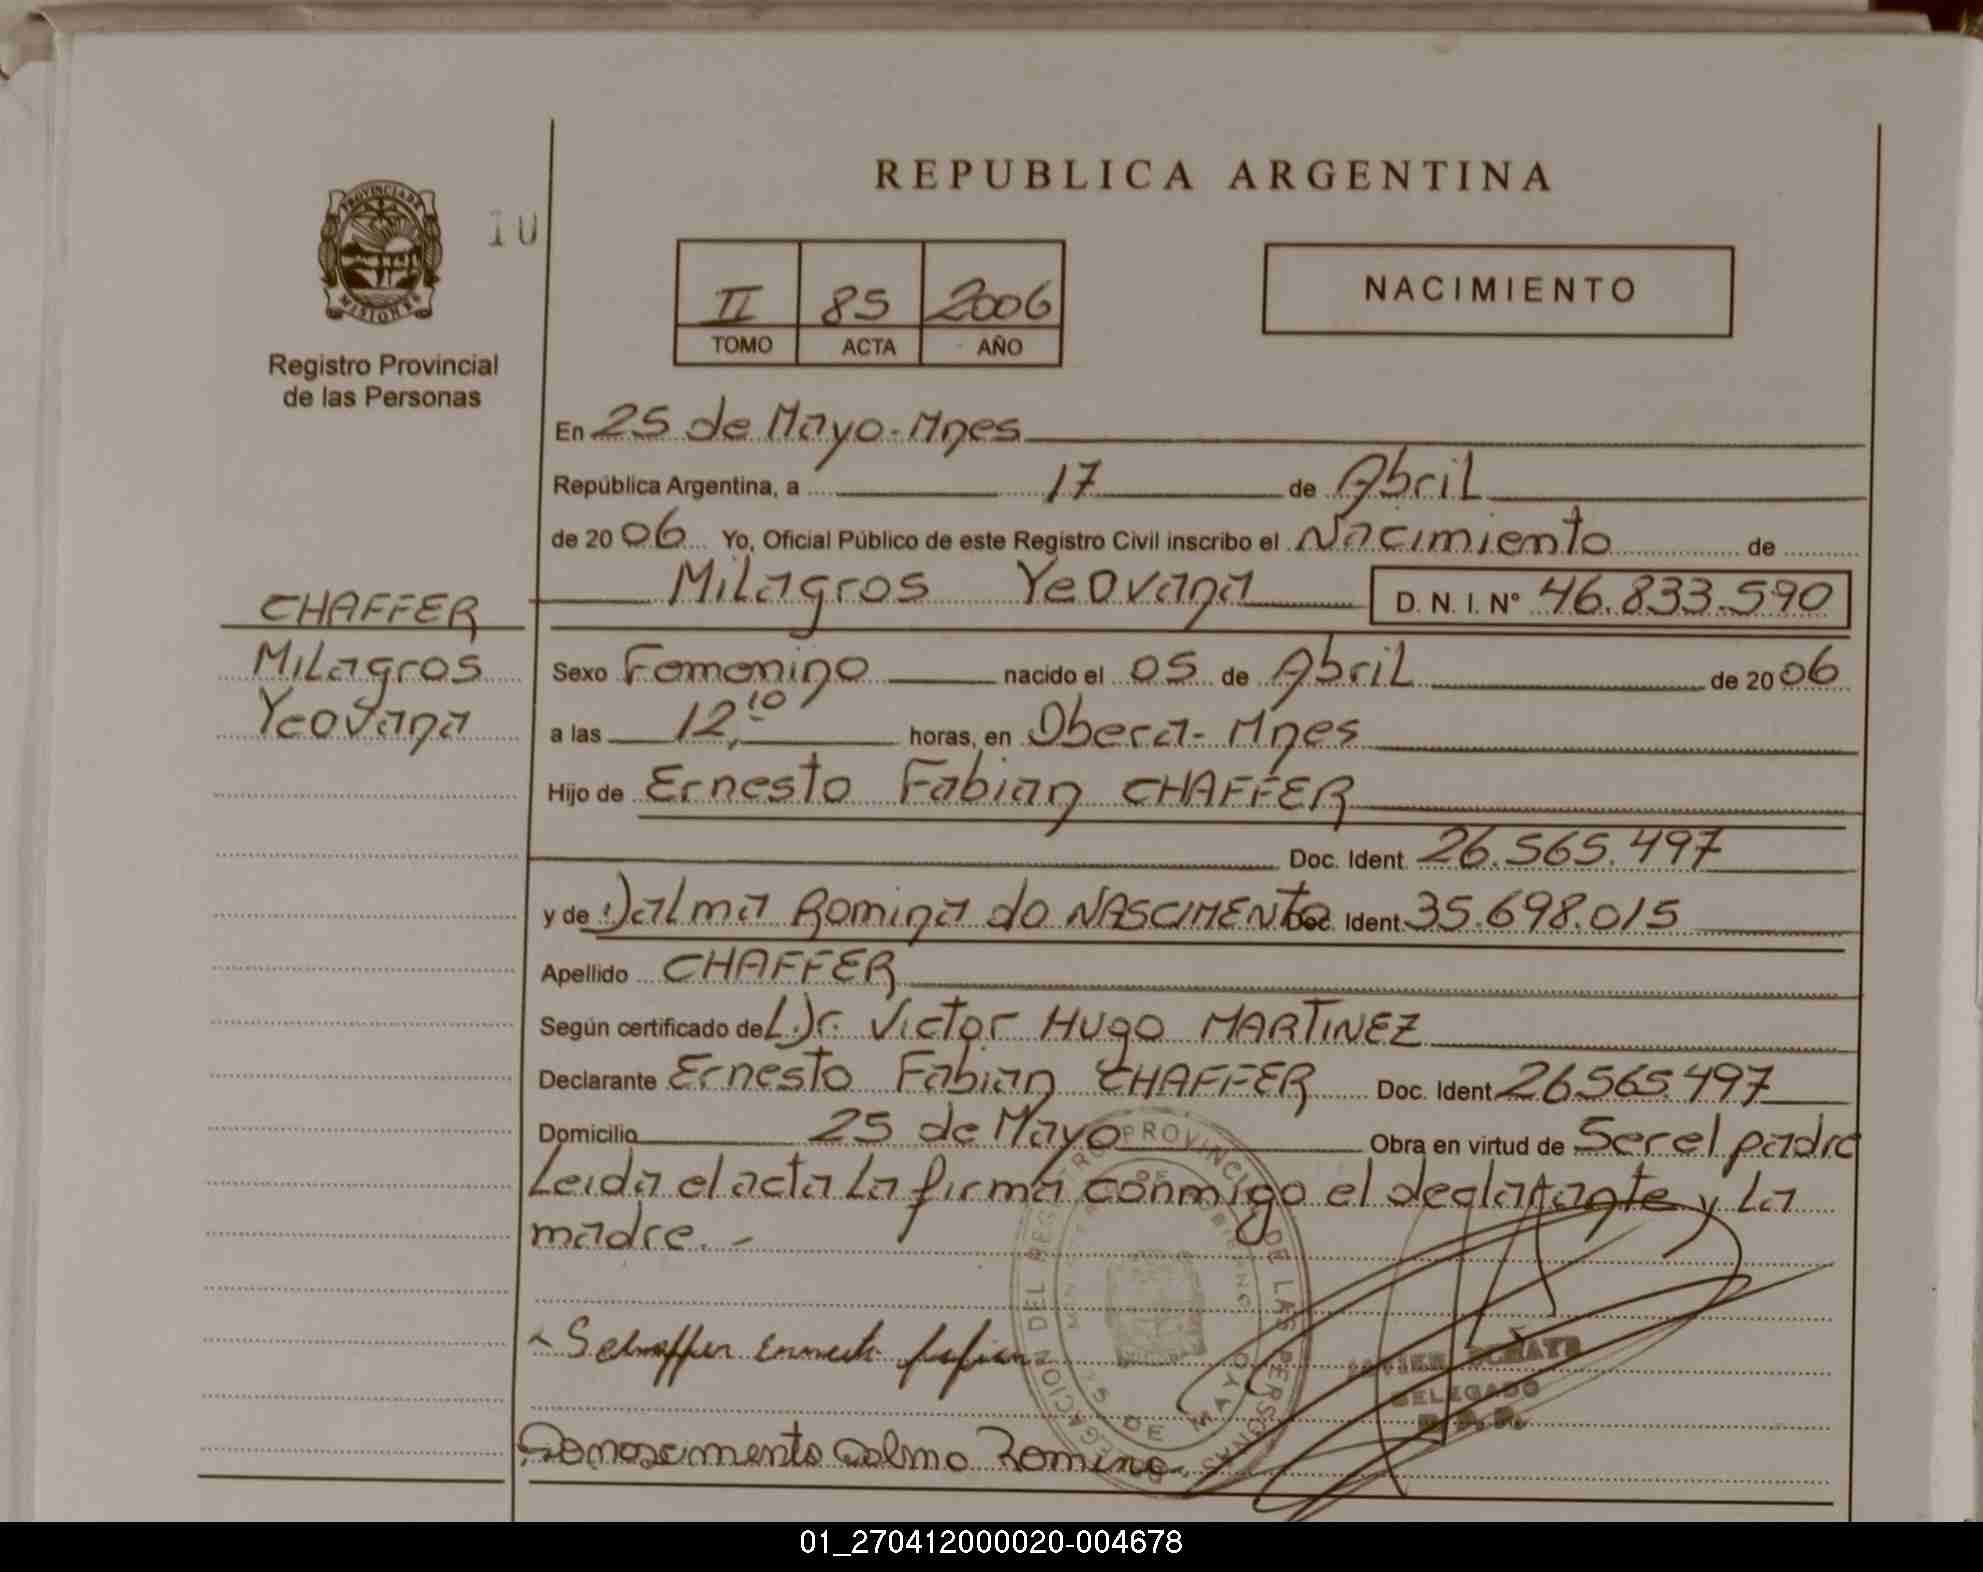 REPUBLICA ARGENTINA
PROVINCIA DE
MISIONES
10
Registro Provincial
de las Personas
II 85 2006
TOMO ACTA AÑO
NACIMIENTO
En 25 de Mayo-Mnes
República Argentina, a 17 de Abril
de 2006 Yo, Oficial Público de este Registro Civil inscribo el Nacimiento de
Milagros Yeovana D. N. I. Nº 46.833.590
CHAFFER
Milagros
Yeovana
Sexo Femenino nacido el 05 de Abril de 2006
a las 12,10 horas, en Obera-Mnes
Hijo de Ernesto Fabian CHAFFER
Doc. Ident. 26.565.497
y de Dalma Romina do NASCIMENTO Doc. Ident. 35.698.015
Apellido CHAFFER
Según certificado del Dr. Victor Hugo MARTINEZ
Declarante Ernesto Fabian CHAFFER Doc. Ident. 26565.497
Domicilio 25 de Mayo Obra en virtud de Ser el padre
Leida el acta la firma conmigo el declarante y la
madre.-
DELEGACION DEL REGISTRO PROVINCIAL DE LAS PERSONAS
25 DE MAYO
JAVIER
DELEGADO
Romina
01_270412000020-004678